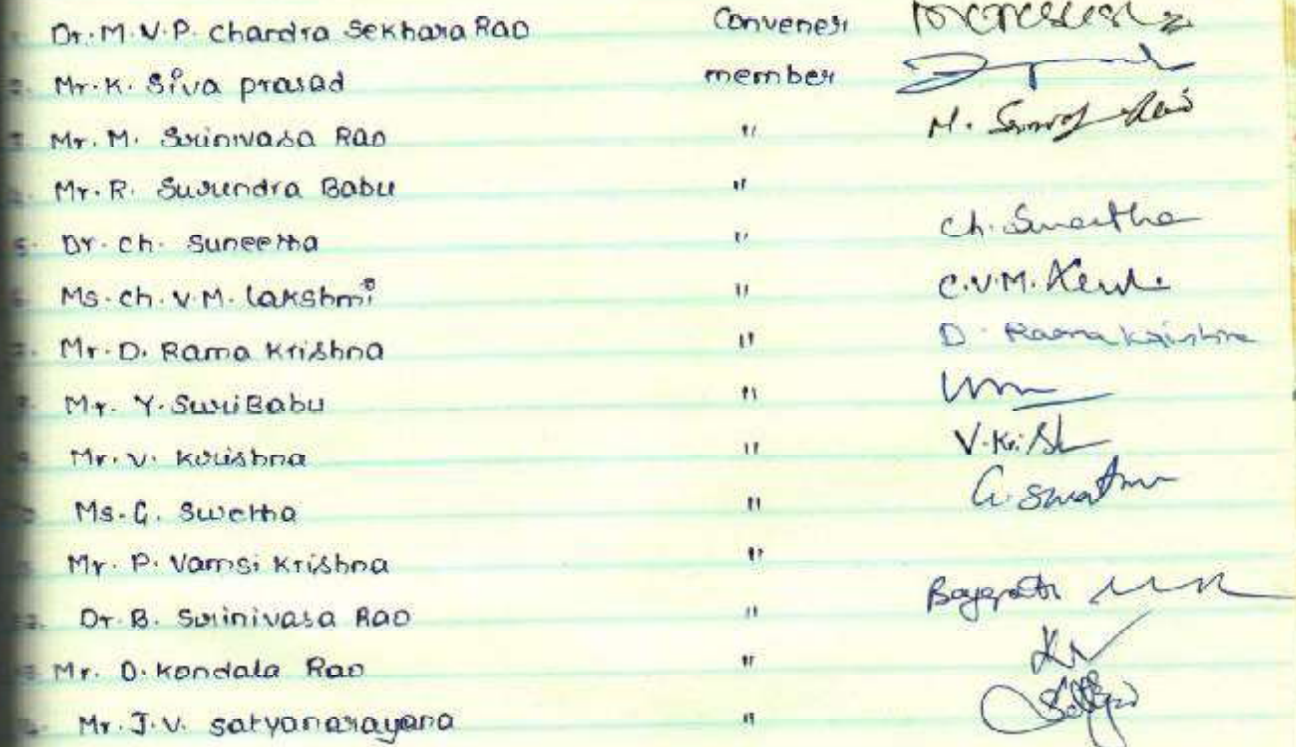 Dr. M.V.P. Chandra Sekhara Rao Convener
2. Mr. K. Siva prasad member
3. Mr. M. Srinivasa Rao " M. Rao
Mr. R. Surendra Babu "
5. Dr. Ch. Suneetha " Ch. Suneetha
Ms. Ch. V.M. Lakshmi " C.V.M.
7. Mr. D. Rama Krishna " D. Rama Krishna
Mr. Y. Suri Babu "
Mr. V. Krishna " V. Krish
Ms. G. Swetha " G. Swetha
Mr. P. Vamsi Krishna "
Dr. B. Srinivasa Rao "
Mr. D. Kondala Rao "
Mr. J.V. satyanarayana "